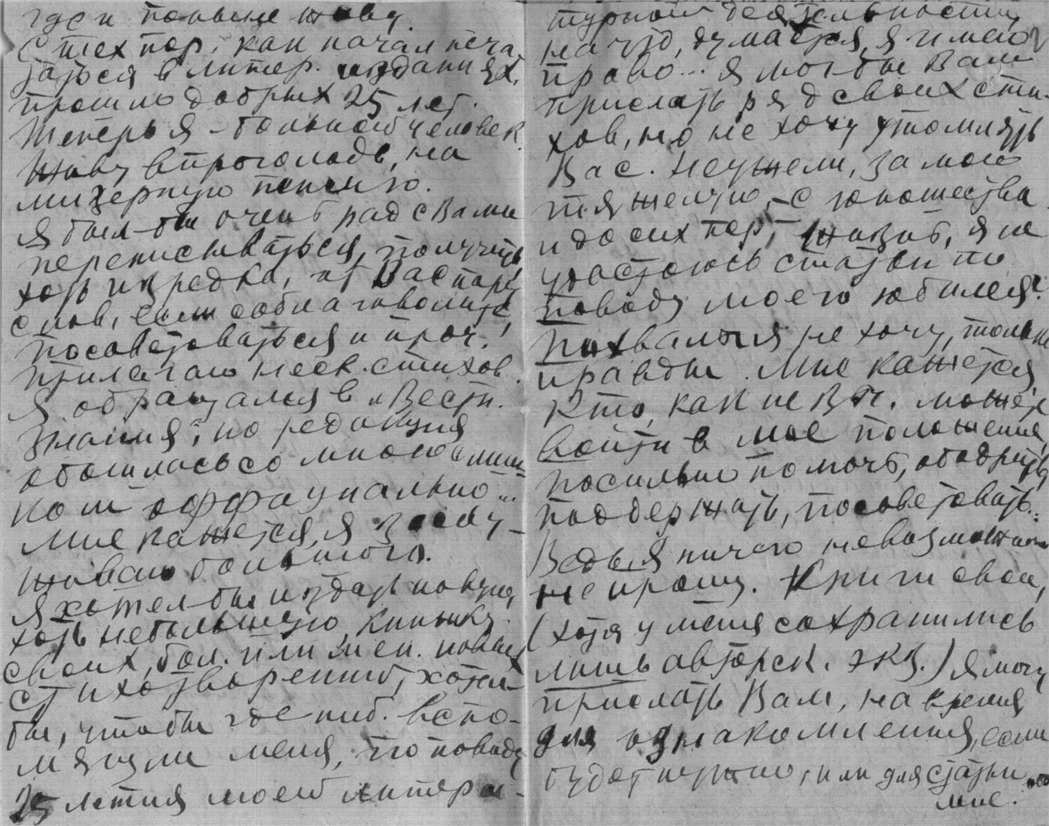 где и поныне живу.
С тех пор, как начал печа-
таться в литер. изданиях,
прошло добрых 25 лет.
Теперь я – больной человек.
Живу впроголодь, на
мизерную пенсию.
Я был-бы очень рад с Вами
переписываться, получить
хоть изредка, от Вас пару
слов, если соблаговолите,
посоветоваться и проч.
Прилагаю неск. стихов.
Я обращался в „Вестн.
Знания", но редакция
обошлась со мною слиш-
ком оффициально...
Мне кажется, я заслу-
живаю большого.
Я хотел-бы издать новую,
хоть небольшую, книжку
своих, бол. или мен. новых
стихотворений, хотел-
бы, чтобы где ниб. вспо-
мянули меня, по поводу
25 летия моей литера-
турной деятельности,
на что, думается, я имею
право... Я мог-бы Вам
прислать ряд своих сти-
хов, но не хочу утомлять
Вас. Неужели, за мою
тяжелую, с юношества
и до сих пор, – жизнь, я не
удостоюсь статьи по
поводу моего юбилея?
Похвалы я не хочу, только
правды. Мне кажется,
кто, как не Вы, может
войти в мое положение,
посильно помочь, ободрить,
поддержать, посоветовать.
Ведь я ничего невозможного
не прошу. Книги свои,
(хотя у меня сохранились
лишь авторск. экз.) я могу
прислать Вам, на время
для ознакомления, если
будет нужно, или для статьи
мне.